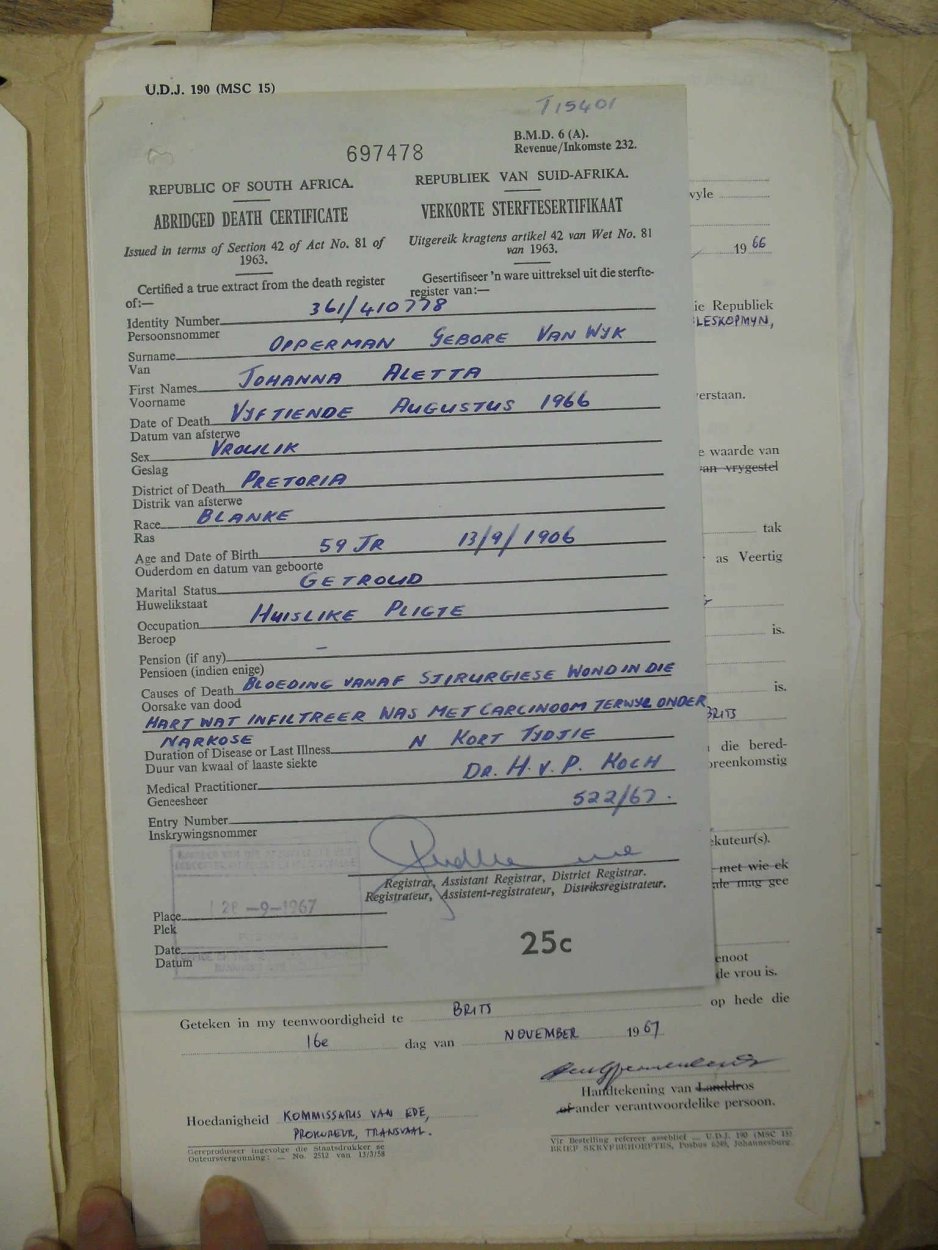 U.D.J. 190 (MSC 15)
T15401
B.M.D. 6 (A).
Revenue/Inkomste 232.
697478
REPUBLIC OF SOUTH AFRICA.
REPUBLIEK VAN SUID-AFRIKA.
ABRIDGED DEATH CERTIFICATE
VERKORTE STERFTESERTIFIKAAT
Issued in terms of Section 42 of Act No. 81 of
1963.
Uitgereik kragtens artikel 42 van Wet No. 81
van 1963.
Certified a true extract from the death register
of:—
Gesertifiseer 'n ware uittreksel uit die sterfte-
register van:—
Identity Number 361/410778
Persoonsnommer
Surname OPPERMAN GEBORE VAN WYK
Van
First Names JOHANNA ALETTA
Voorname
Date of Death VYFTIENDE AUGUSTUS 1966
Datum van afsterwe
Sex VROULIK
Geslag
District of Death PRETORIA
Distrik van afsterwe
Race BLANKE
Ras
Age and Date of Birth 59 JR 13/9/1906
Ouderdom en datum van geboorte
Marital Status GETROUD
Huwelikstaat
Occupation HUISLIKE PLIGTE
Beroep
Pension (if any) –
Pensioen (indien enige)
Causes of Death BLOEDING VANAF SJIRURGIESE WOND IN DIE
Oorsake van dood
HART WAT INFILTREER WAS MET CARCINOOM TERWYL ONDER
NARKOSE
Duration of Disease or Last Illness N KORT TYDJIE
Duur van kwaal of laaste siekte
Medical Practitioner DR. H. V. P. KOCH
Geneesheer
Entry Number 522/67.
Inskrywingsnommer
Registrar, Assistant Registrar, District Registrar.
Registrateur, Assistent-registrateur, Distriksregistrateur.
28 -9-1967
Place
Plek
Date
Datum
25c
wyle
1966
ie Republiek
LESKOPMYN,
erstaan.
e waarde van
van vrygestel
tak
as Veertig
is.
is.
BRITS
die bered-
oreenkomstig
kuteur(s).
met wie ek
ale mag gee
enoot
de vrou is.
Geteken in my teenwoordigheid te BRITS op hede die
16e dag van NOVEMBER 1967
Handtekening van Landdros
of ander verantwoordelike persoon.
Hoedanigheid KOMMISSARIS VAN EDE,
PROKUREUR, TRANSVAAL.
Gereproduseer ingevolge die Staatsdrukker se
Outeursvergunning: — No. 2512 van 13/5/58
Vir Bestelling refereer asseblief — U.D.J. 190 (MSC 15)
BRIEF SKRYFBEHOEFTES, Posbus 6249, Johannesburg.